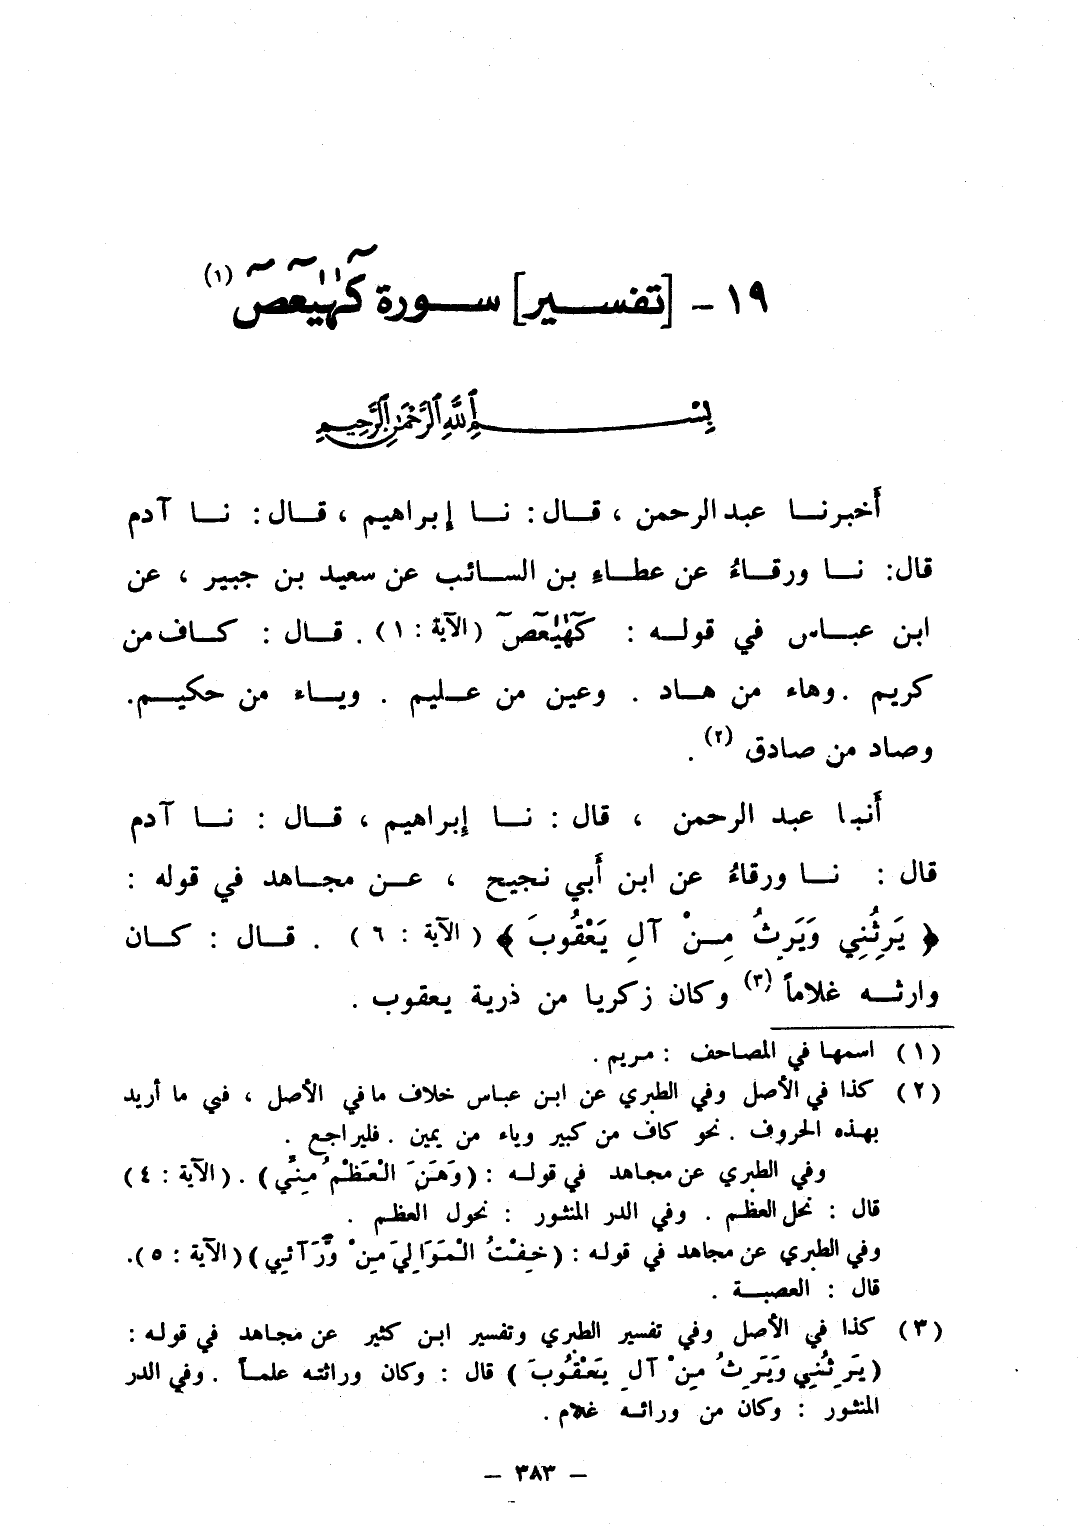 ١٩ - [تفسير] سورة كهيعص (١)
بسم الله الرحمن الرحيم
أخبرنا عبد الرحمن ، قال : نا إبراهيم ، قال : نا آدم
قال: نا ورقاءُ عن عطاءِ بن السائب عن سعيد بن جبير ، عن
ابن عباس في قوله : كهيعص (الآية : ١) . قال : كاف من
كريم . وهاء من هاد . وعين من عليم . وياء من حكيم.
وصاد من صادق (٢) .
أنبا عبد الرحمن ، قال : نا إبراهيم ، قال : نا آدم
قال : نا ورقاءُ عن ابن أبي نجيح ، عن مجاهد في قوله :
﴿ يَرِثُنِي وَيَرِثُ مِنْ آلِ يَعْقُوبَ ﴾ ( الآية : ٦ ) . قال : كان
وارثه غلاماً (٣) وكان زكريا من ذرية يعقوب .
(١) اسمها في المصاحف : مريم .
(٢) كذا في الأصل وفي الطبري عن ابن عباس خلاف ما في الأصل ، في ما أريد
بهذه الحروف . نحو كاف من كبير وياء من يمين . فليراجع .
وفي الطبري عن مجاهد في قوله : (وَهَنَ الْعَظْمُ مِنِّي) . (الآية : ٤)
قال : نحل العظم . وفي الدر المنثور : نحول العظم .
وفي الطبري عن مجاهد في قوله : (خِفْتُ الْمَوَالِيَ مِنْ وَّرَآئِي) (الآية : ٥).
قال : العصبة .
(٣) كذا في الأصل وفي تفسير الطبري وتفسير ابن كثير عن مجاهد في قوله :
(يَرِثُنِي وَيَرِثُ مِنْ آلِ يَعْقُوبَ) قال : وكان وراثته علماً . وفي الدر
المنثور : وكان من ورائه غلام .
- ٣٨٣ -